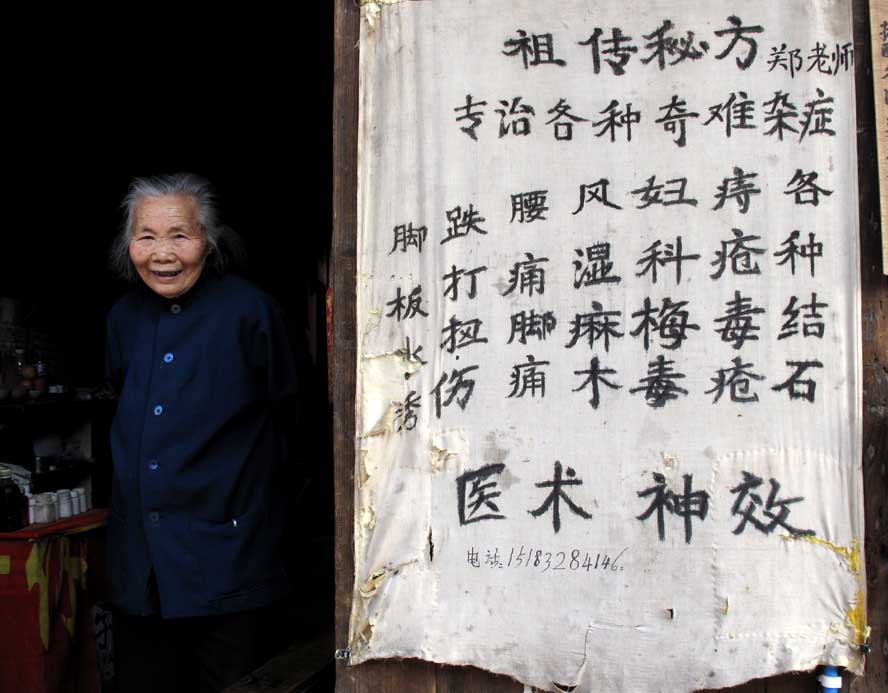 祖传秘方 郑老师
专治各种奇难杂症
各种结石
痔疮毒疮
妇科梅毒
风湿麻木
腰痛脚痛
跌打扭伤
脚板水
医术 神效
电话:15183284146。